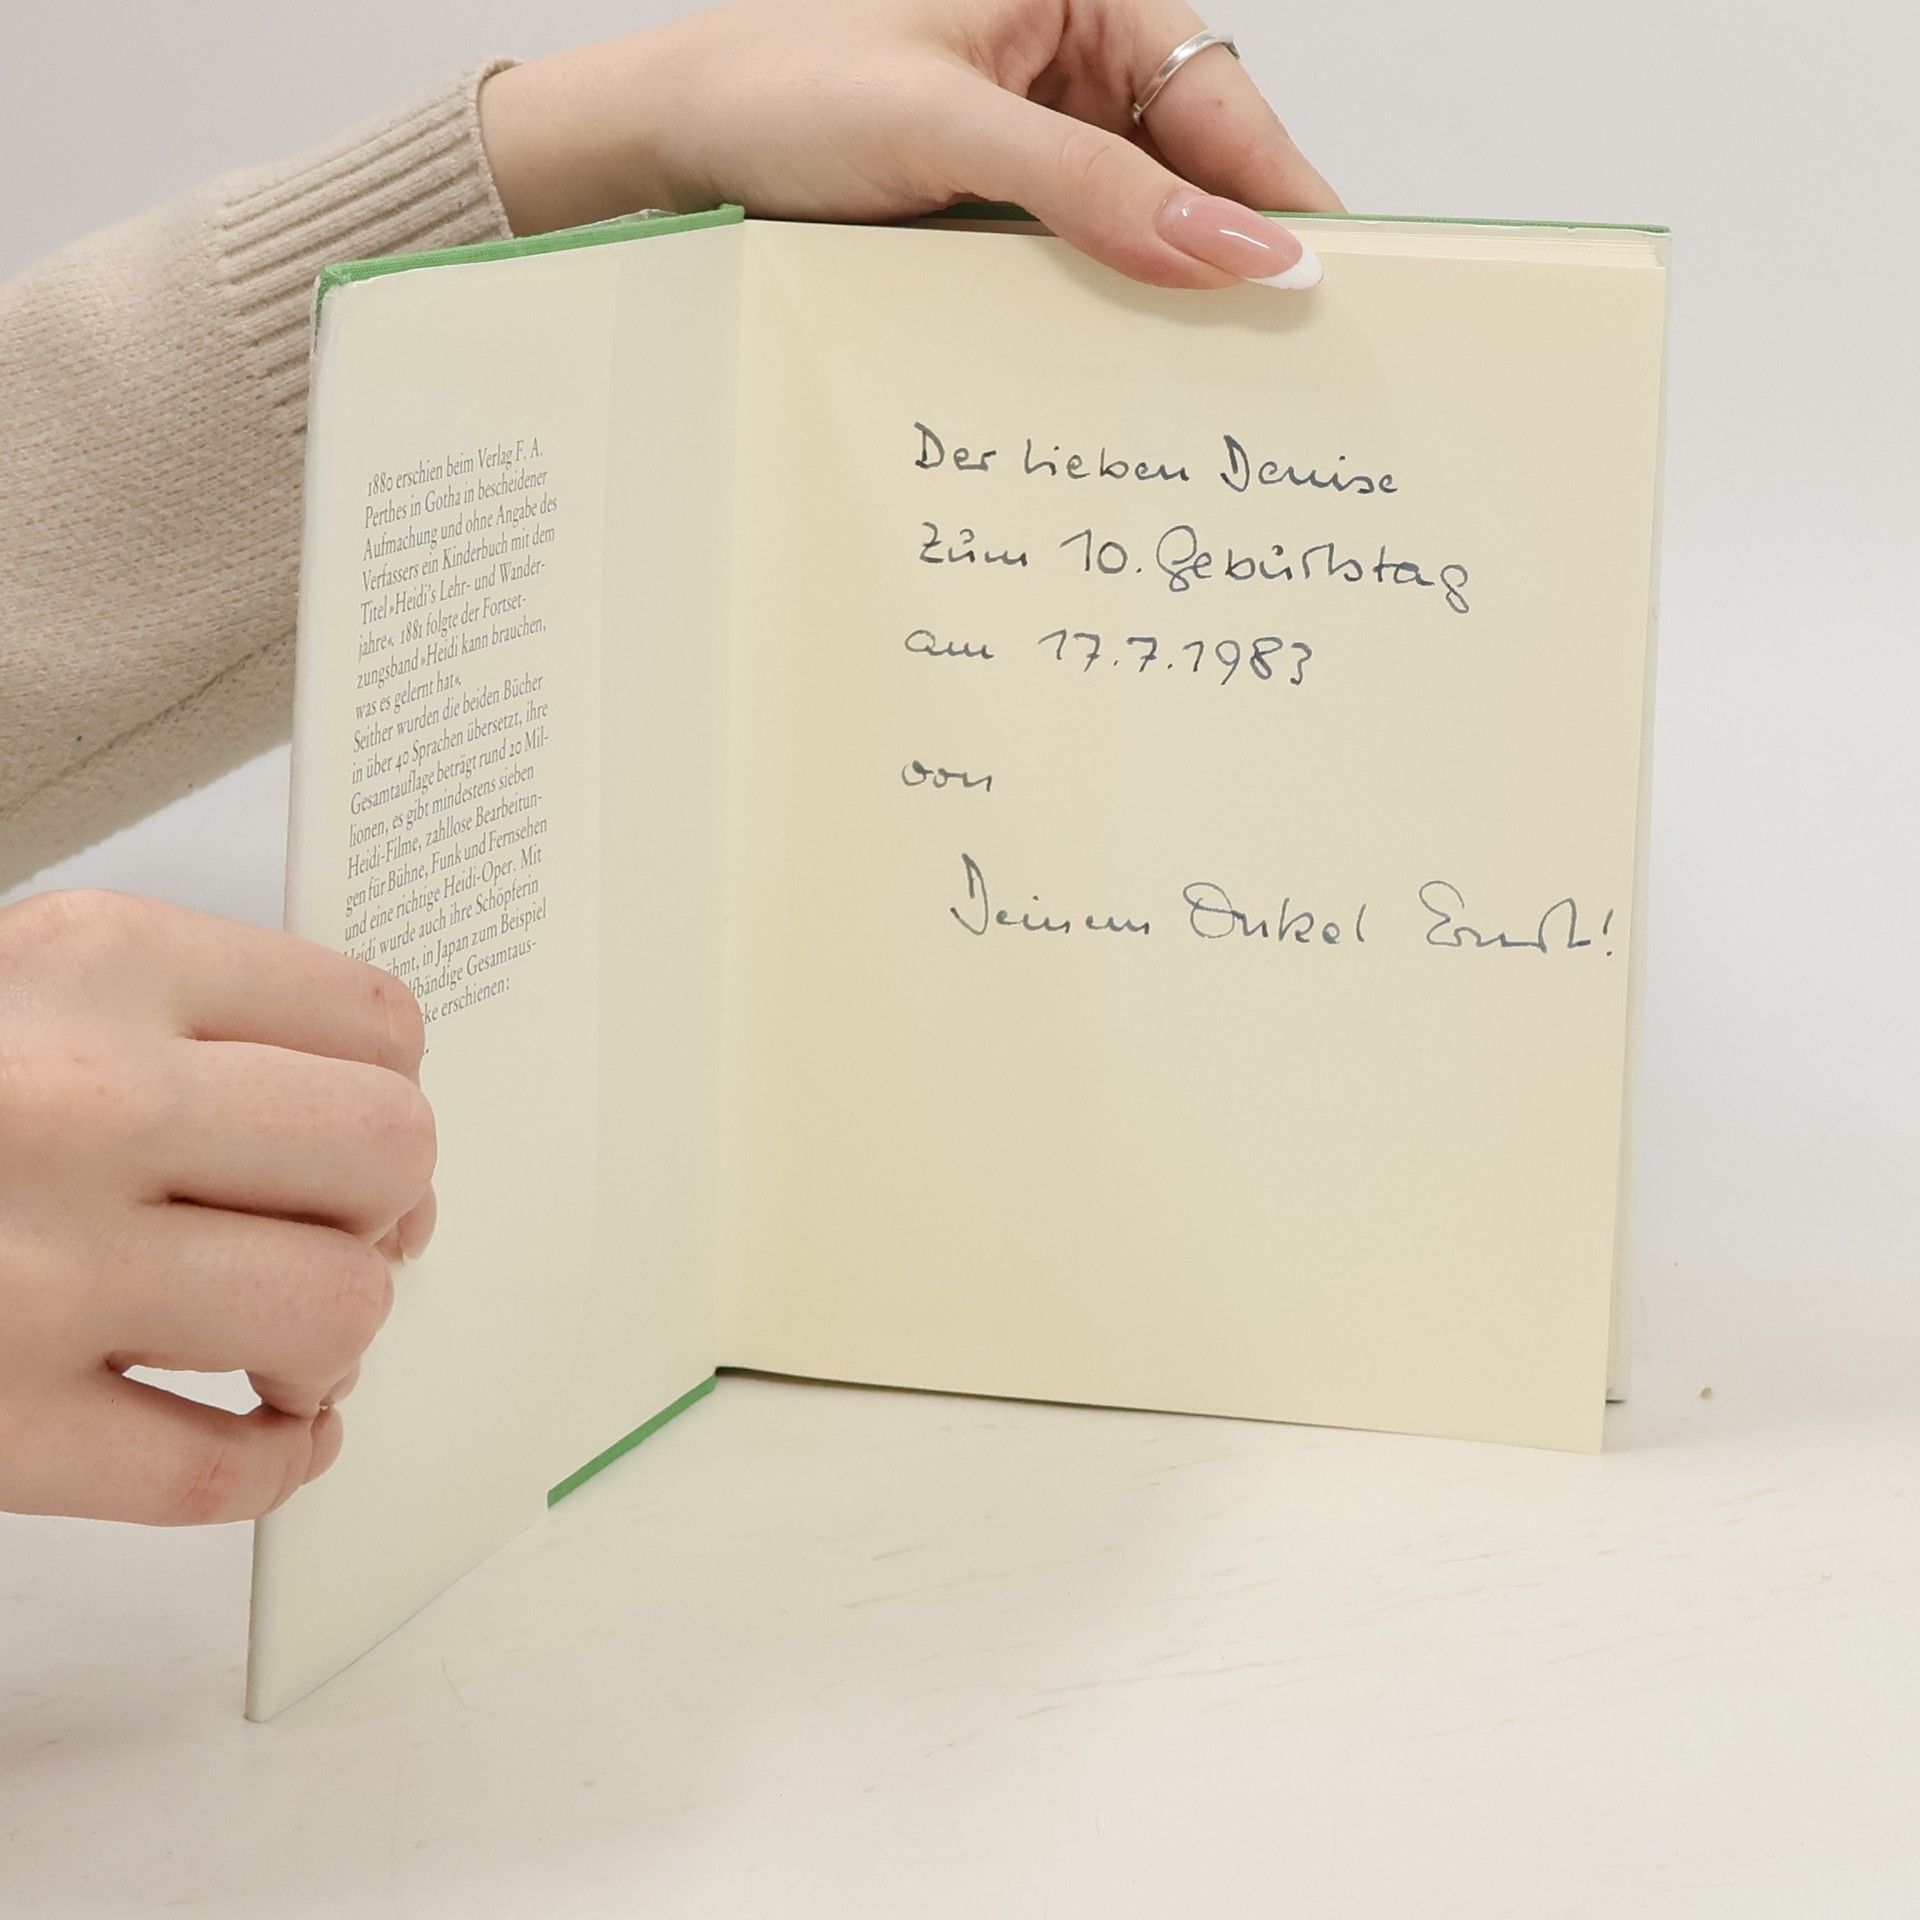 1880 erschien beim Verlag F. A.
Perthes in Gotha in bescheidener
Aufmachung und ohne Angabe des
Verfassers ein Kinderbuch mit dem
Titel »Heidi's Lehr- und Wander-
jahre«. 1881 folgte der Fortset-
zungsband »Heidi kann brauchen,
was es gelernt hat«.
Seither wurden die beiden Bücher
in über 40 Sprachen übersetzt, ihre
Gesamtauflage beträgt rund 20 Mil-
lionen, es gibt mindestens sieben
Heidi-Filme, zahllose Bearbeitun-
gen für Bühne, Funk und Fernsehen
und eine richtige Heidi-Oper. Mit
Heidi wurde auch ihre Schöpferin
ühmt, in Japan zum Beispiel
lfbändige Gesamtaus-
rke erschienen:
Der lieben Denise
zum 10. Geburtstag
am 17.7.1983
von
Deinem Onkel Ernst!